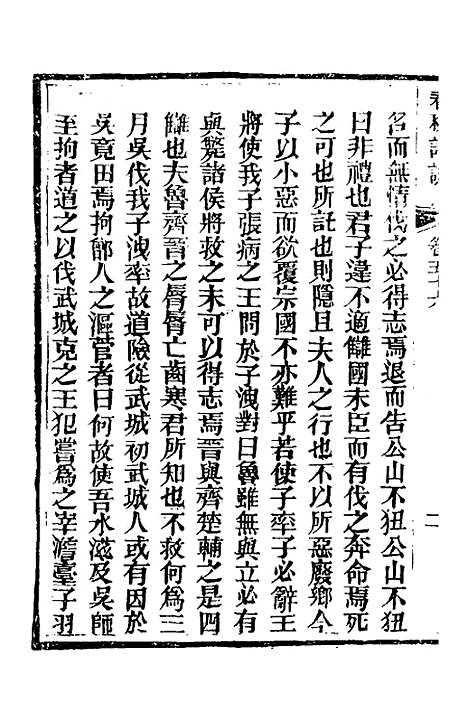 名而無情伐之必得志焉退而告公山不狃公山不狃
曰非禮也君子違不適讎國未臣而有伐之奔命焉死
之可也所託也則隱且夫人之行也不以所惡廢鄉今
子以小惡而欲覆宗國不亦難乎若使子率子必辭王
將使我子張病之王問於子洩對曰魯雖無與立必有
與斃諸侯將救之未可以得志焉晉與齊楚輔之是四
讎也夫魯齊晉之脣脣亡齒寒君所知也不救何爲三
月吳伐我子洩率故道險從武城初武城人或有因於
吳竟田焉拘鄫人之漚菅者曰何故使吾水滋及吳師
至拘者道之以伐武城克之王犯嘗爲之宰澹臺子羽
卷五十六